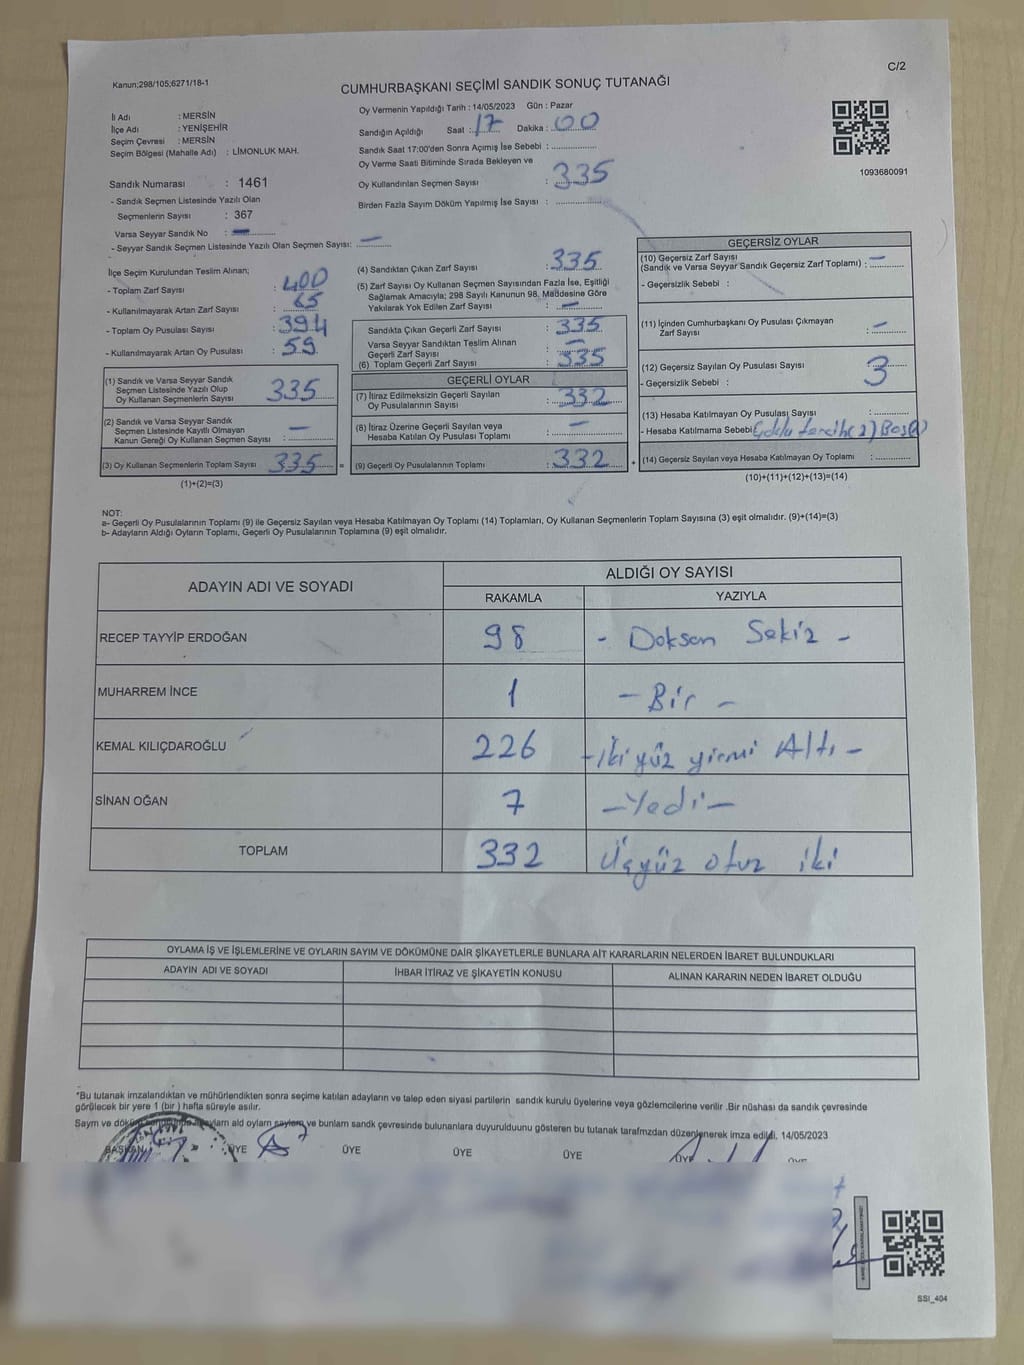 C/2
Kanun;298/105;6271/18-1
CUMHURBAŞKANI SEÇİMİ SANDIK SONUÇ TUTANAĞI
1093680091
İl Adı : MERSİN
İlçe Adı : YENİŞEHİR
Seçim Çevresi : MERSİN
Seçim Bölgesi (Mahalle Adı) : LİMONLUK MAH.
Oy Vermenin Yapıldığı Tarih : 14/05/2023 Gün : Pazar
Sandığın Açıldığı Saat : 17 Dakika : 00
Sandık Saat 17:00'den Sonra Açımış İse Sebebi :
Oy Verme Saati Bitiminde Sırada Bekleyen ve
Oy Kullandırılan Seçmen Sayısı : 335
Birden Fazla Sayım Döküm Yapılmış İse Sayısı :
Sandık Numarası : 1461
- Sandık Seçmen Listesinde Yazılı Olan
Seçmenlerin Sayısı : 367
Varsa Seyyar Sandık No : —
- Seyyar Sandık Seçmen Listesinde Yazılı Olan Seçmen Sayısı: —
İlçe Seçim Kurulundan Teslim Alınan;
- Toplam Zarf Sayısı : 400
- Kullanılmayarak Artan Zarf Sayısı : 65
- Toplam Oy Pusulası Sayısı : 394
- Kullanılmayarak Artan Oy Pusulası : 59
(1) Sandık ve Varsa Seyyar Sandık
Seçmen Listesinde Yazılı Olup
Oy Kullanan Seçmenlerin Sayısı 335
(2) Sandık ve Varsa Seyyar Sandık
Seçmen Listesinde Kayıtlı Olmayan
Kanun Gereği Oy Kullanan Seçmen Sayısı : —
(3) Oy Kullanan Seçmenlerin Toplam Sayısı 335 =
(1)+(2)=(3)
(4) Sandıktan Çıkan Zarf Sayısı : 335
(5) Zarf Sayısı Oy Kullanan Seçmen Sayısından Fazla İse, Eşitliği
Sağlamak Amacıyla; 298 Sayılı Kanunun 98. Maddesine Göre
Yakılarak Yok Edilen Zarf Sayısı : —
Sandıkta Çıkan Geçerli Zarf Sayısı : 335
Varsa Seyyar Sandıktan Teslim Alınan
Geçerli Zarf Sayısı : —
(6) Toplam Geçerli Zarf Sayısı : 335
GEÇERLİ OYLAR
(7) İtiraz Edilmeksizin Geçerli Sayılan
Oy Pusulalarının Sayısı : 332
(8) İtiraz Üzerine Geçerli Sayılan veya
Hesaba Katılan Oy Pusulası Toplamı : —
(9) Geçerli Oy Pusulalarının Toplamı : 332 +
GEÇERSİZ OYLAR
(10) Geçersiz Zarf Sayısı
(Sandık ve Varsa Seyyar Sandık Geçersiz Zarf Toplamı) : —
- Geçersizlik Sebebi :
(11) İçinden Cumhurbaşkanı Oy Pusulası Çıkmayan
Zarf Sayısı : —
(12) Geçersiz Sayılan Oy Pusulası Sayısı : 3
- Geçersizlik Sebebi :
(13) Hesaba Katılmayan Oy Pusulası Sayısı :
- Hesaba Katılmama Sebebi
(14) Geçersiz Sayılan veya Hesaba Katılmayan Oy Toplamı :
(10)+(11)+(12)+(13)=(14)
NOT:
a- Geçerli Oy Pusulalarının Toplamı (9) ile Geçersiz Sayılan veya Hesaba Katılmayan Oy Toplamı (14) Toplamları, Oy Kullanan Seçmenlerin Toplam Sayısına (3) eşit olmalıdır. (9)+(14)=(3)
b- Adayların Aldığı Oyların Toplamı, Geçerli Oy Pusulalarının Toplamına (9) eşit olmalıdır.
ADAYIN ADI VE SOYADI ALDIĞI OY SAYISI
RAKAMLA YAZIYLA
RECEP TAYYİP ERDOĞAN 98 - Doksan Sekiz -
MUHARREM İNCE 1 - Bir -
KEMAL KILIÇDAROĞLU 226 - İki yüz yirmi Altı -
SİNAN OĞAN 7 - Yedi -
TOPLAM 332 Üçyüz otuz iki
OYLAMA İŞ VE İŞLEMLERİNE VE OYLARIN SAYIM VE DÖKÜMÜNE DAİR ŞİKAYETLERLE BUNLARA AİT KARARLARIN NELERDEN İBARET BULUNDUKLARI
ADAYIN ADI VE SOYADI İHBAR İTİRAZ VE ŞİKAYETİN KONUSU ALINAN KARARIN NEDEN İBARET OLDUĞU
*Bu tutanak imzalandıktan ve mühürlendikten sonra seçime katılan adayların ve talep eden siyasi partilerin sandık kurulu üyelerine veya gözlemcilerine verilir .Bir nüshası da sandık çevresinde
görülecek bir yere 1 (bir ) hafta süreyle asılır.
Sayım ve ald oylam ve bunlarn sandk çevresinde bulunanlara duyurulduunu gösteren bu tutanak tarafmzdan düzenlenerek imza edildi, 14/05/2023
BAŞKAN ÜYE ÜYE ÜYE ÜYE ÜYE
SSI_404